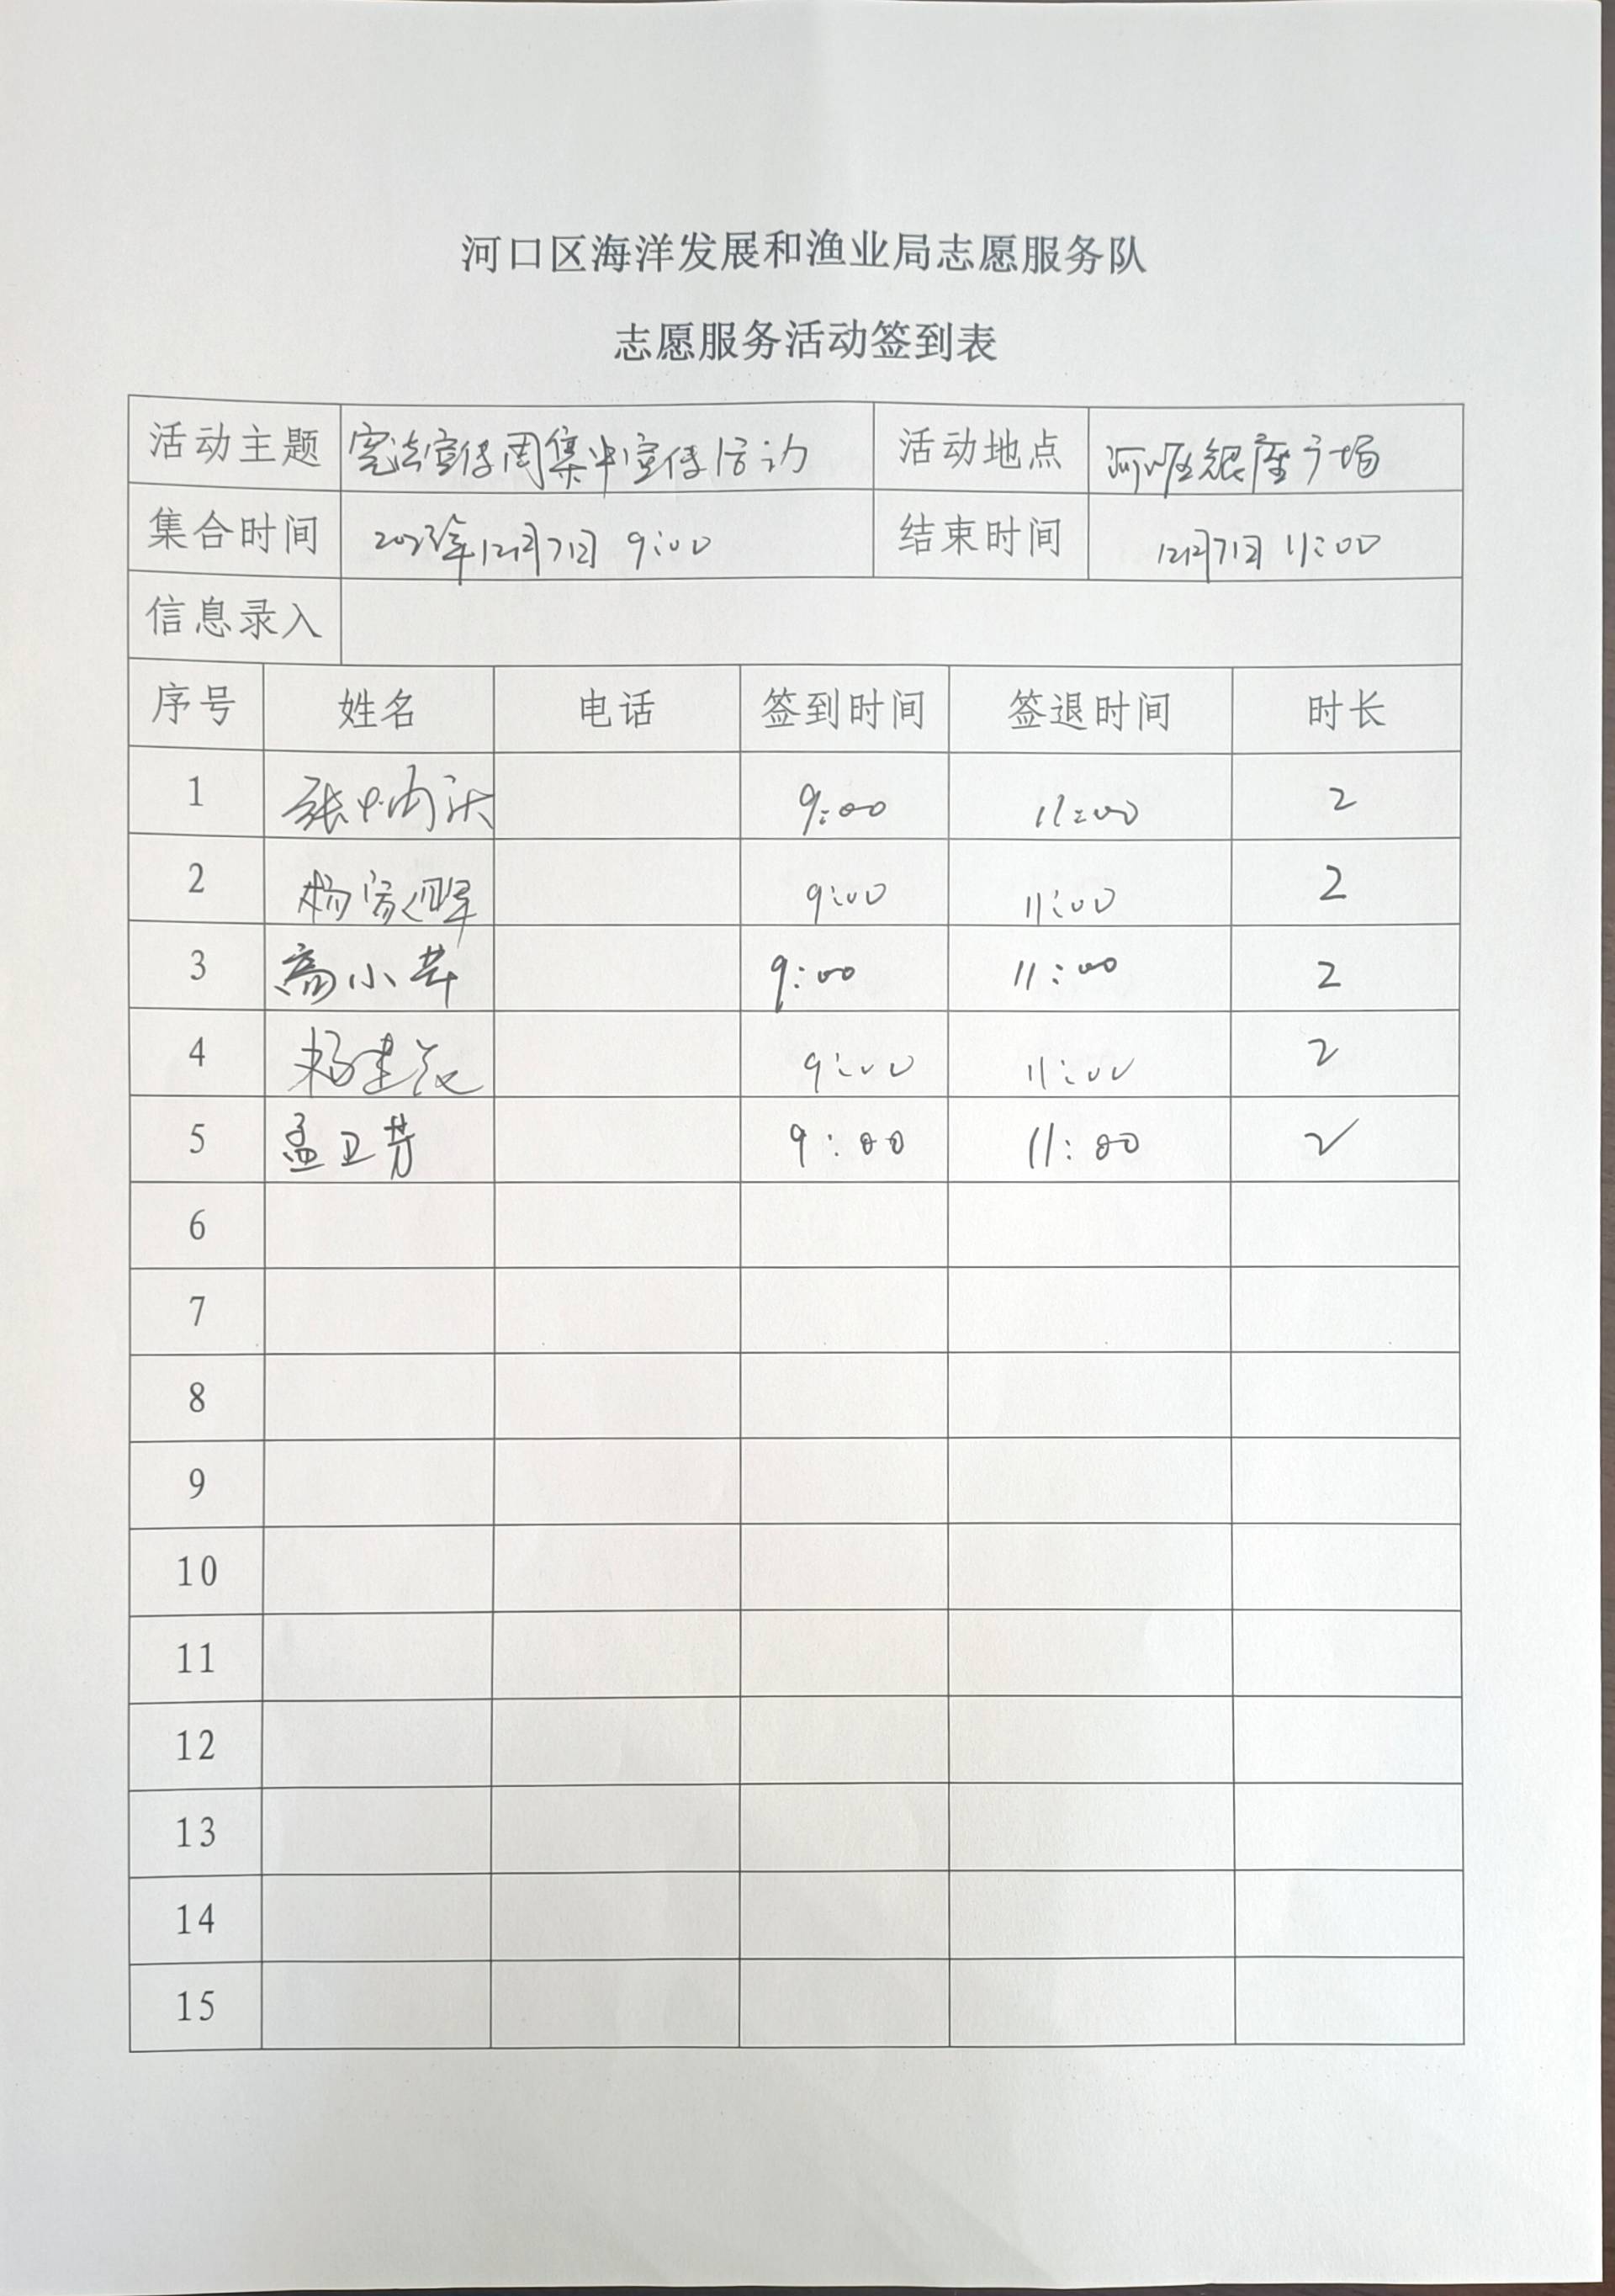 河口区海洋发展和渔业局志愿服务队
志愿服务活动签到表
活动主题 宪法宣传周集中宣传活动 活动地点 河口区银座广场
集合时间 2023年12月7日 9:00 结束时间 12月7日 11:00
信息录入
序号 姓名 电话 签到时间 签退时间 时长
1 张 9:00 11:00 2
2 杨 9:00 11:00 2
3 高小 9:00 11:00 2
4 杨建 9:00 11:00 2
5 孟卫芳 9:00 11:00 2
6
7
8
9
10
11
12
13
14
15